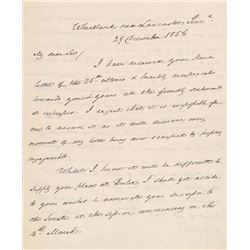 Wheatland near Lancaster, Penn a
29 December 1856
My dear Sir/
I have received your kind
letter of the 25th ultimo & heartily reciprocate
towards you & yours all the friendly sentiments
it expresses. I regret that it is impossible for
me to answer it as with
moment of my time being now occupied by
engagements.
Whilst I know it will be difficult to
supply your place at Berlin, I shall yet accede
to your wishes & nominate your successor to
the Senate at the Session commencing on the
4th March.